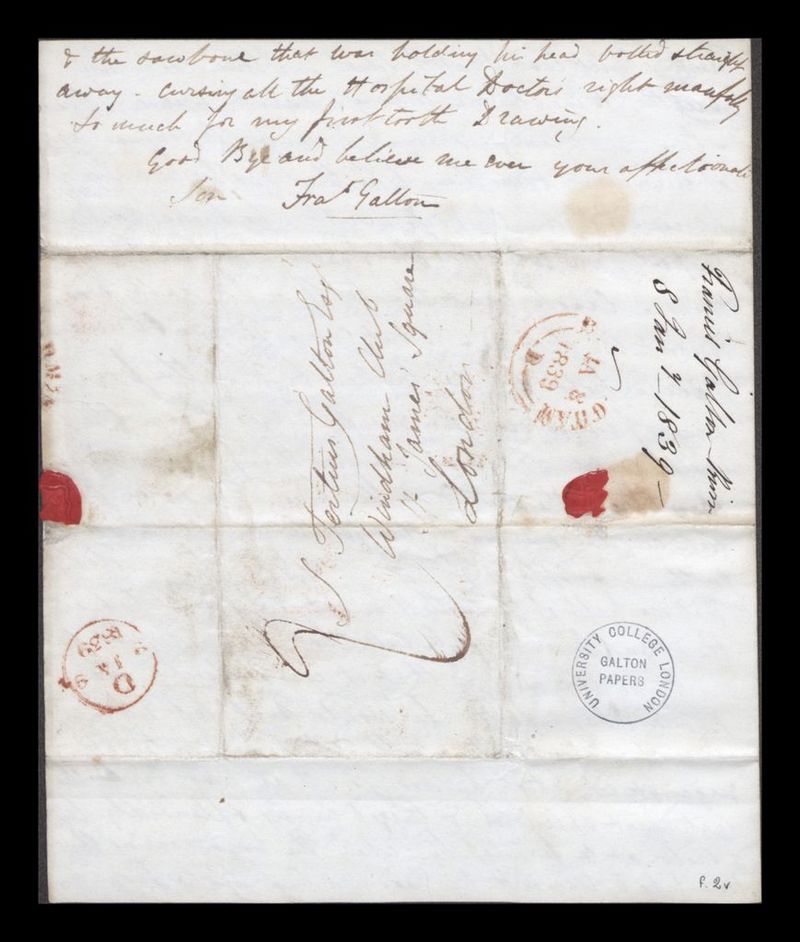 & the sawbone that was holding his head bolted straight
away - cursing all the Hospital Doctors right manfully
So much for my first tooth Drawing.
Good Bye and believe me ever your affectionate
Son Fras Galton
S. Tertius Galton Esqr
Windham Club
St James' Square
London
Francis Galton
8 Jany 1839
GHAM
JA 8
1839
D
JA
1839
UNIVERSITY COLLEGE LONDON
GALTON
PAPERS
f. 2v